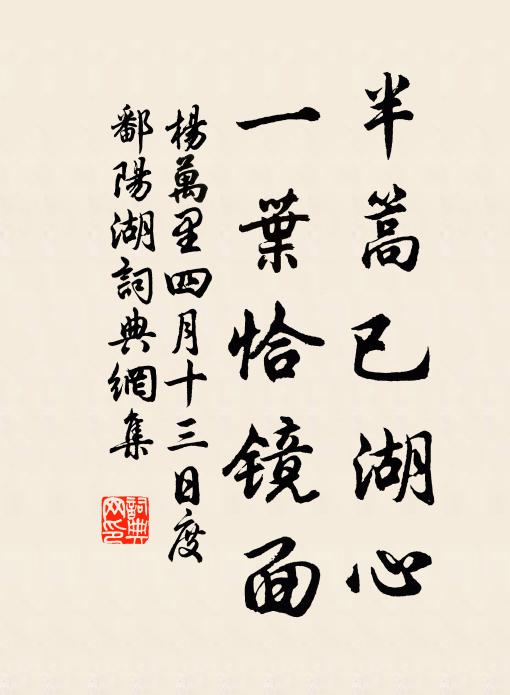 半篙已湖心
一葉恰鏡面
楊萬里四月十三日度
鄱陽湖詞典網集
詞典
网印